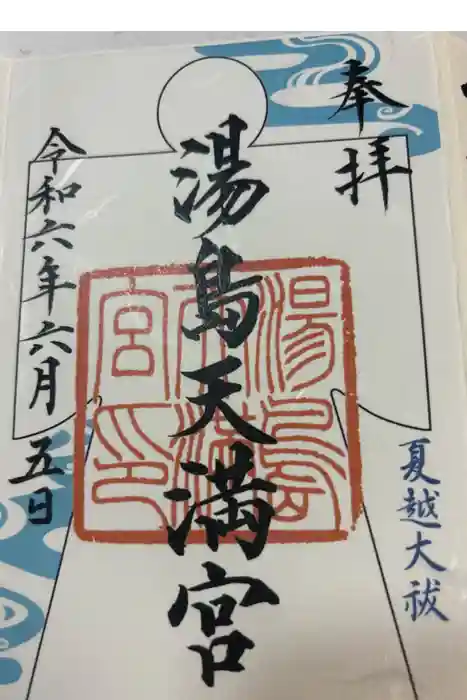 奉拝
湯島天満宮
湯島天満宮印
令和六年六月五日
夏越大祓